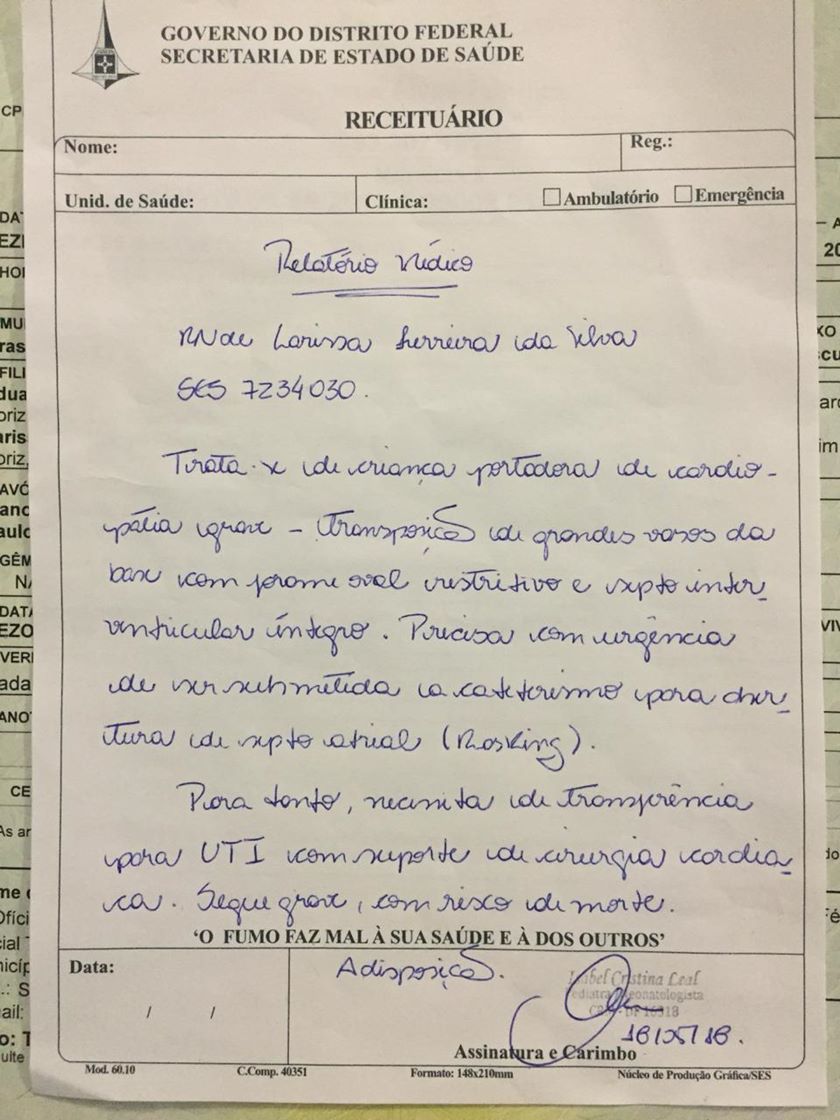 GOVERNO DO DISTRITO FEDERAL
SECRETARIA DE ESTADO DE SAÚDE
RECEITUÁRIO
Nome:
Reg.:
Unid. de Saúde:
Clínica:
Ambulatório
Emergência
Relatório Médico
RN de Larissa Ferreira da Silva
SES 7234030.
Trata-se de criança portadora de cardio-
pátia grave - transposição de grandes vasos da
base com forame oval restritivo e septo inter-
ventricular íntegro. Precisa com urgência
de ser submetida a cateterismo para aber-
tura de septo atrial (Rosking).
Para tanto, necessita de transferência
para UTI com suporte de cirurgia cardia-
ca. Segue grave, com risco de morte.
'O FUMO FAZ MAL À SUA SAÚDE E À DOS OUTROS'
Data:
/ /
A disposição.
Isabel Cristina Leal
Pediatra Neonatologista
CRM-DF 16318
18/05/18.
Assinatura e Carimbo
Mod. 60.10
C.Comp. 40351
Formato: 148x210mm
Núcleo de Produção Gráfica/SES